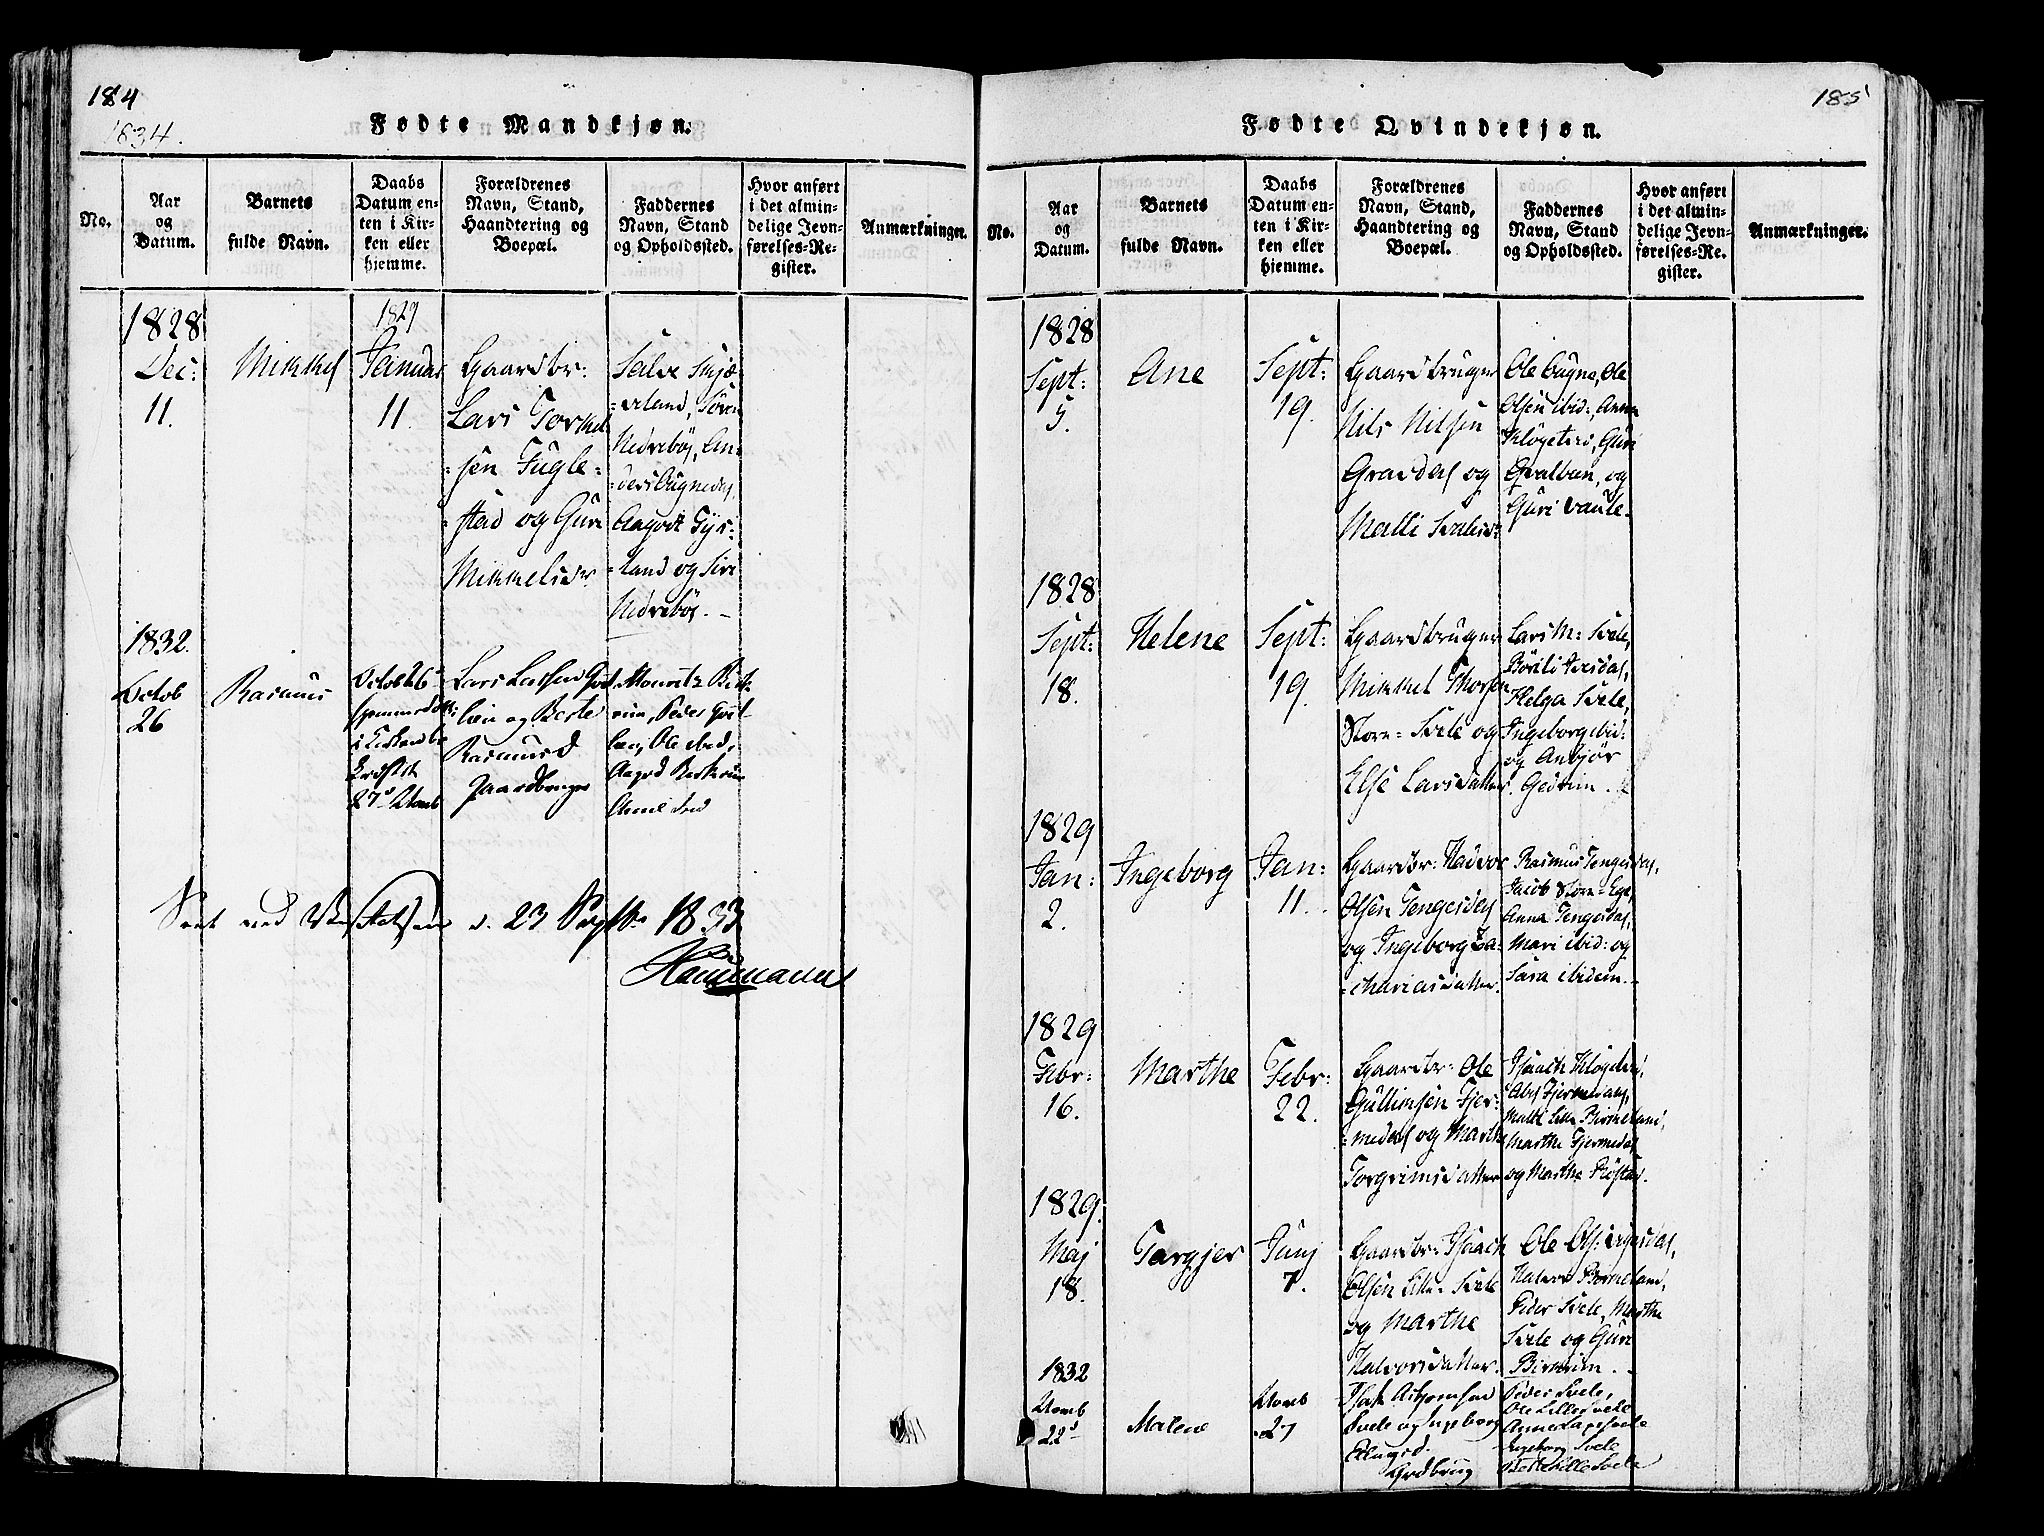 184
1834.
Fødte Mandkjøn.
No.
Aar
og
Datum.
Barnets
fulde Navn.
Daabs
Datum en-
ten i Kir-
ken eller
hjemme.
Forældrenes
Navn, Stand,
Haandtering og
Boepæl.
Faddernes
Navn, Stand
og Opholdssted.
Hvor anført
i det almin-
delige Jevn-
førelses-Re-
gister.
Anmærkninger.
1828
Dec:
11.
Mikkel
1829
Januar
11.
Gaardbr:
Lars Torkel
=sen Fugle=
=stad og Guri
Mikkelsdr.
Salve Skjæ
=rland, Sören
Nedrebög, An=
=ders Eugnedal,
Aagodt Gys=
=land og Siri
Nedrebög. -
1832.
Octob
26
Rasmus
October 26
i Kirken
27
Lars Larsen
og Berte
Rasmusd
Gaardbruger
Mouritz Birk-
rem, Peder
Ole ibid,
Aagod Birkrem
Anne ibid
Seet ved Visitatsen d. 23 Septbr 1833
185
Fødte Qvindekjøn.
No.
Aar
og
Datum.
Barnets
fulde Navn.
Daabs
Datum en-
ten i Kir-
ken eller
hjemme.
Forældrenes
Navn, Stand,
Haandtering og
Boepæl.
Faddernes
Navn, Stand
og Opholdssted.
Hvor anført
i det almin-
delige Jevn-
førelses-Re-
gister.
Anmærkninger.
1828
Sept:
5.
Ane
Sept:
19.
Gaardbruger
Nils Nilsen
Gravdal og
Malli
Ole Eugne, Ole
Olsen ibid:, Anna
Kløgetvi, Guri
Qvalbein, og
Guri Vaule.
1828
Sept:
18.
Helene
Sept:
19.
Gaardbruger
Mikkel Thorsen
Store=Svele og
Else Larsdatter.
Lars M: Svele,
Börili Ivesdal,
Helga Svele,
Ingeborg ibid:
og Anbjør
Gedrem.
1829
Jan:
2.
Ingeborg
Jan:
11.
Gaardbr: Hadvor
Olsen Tengesdal
og Ingeborg Za=
=chariasdatter.
Rasmus Tengesdal,
Jacob Store=Ege,
Anna Tengesdal,
Mari ibid: og
Sara ibidem.
1829
Febr:
16.
Marthe
Febr:
22.
Gaardbr: Ole
Gullimsen Fjer=
=medal og Marthe
Torgrimsdatter
Isaach Kløgetvi,
Abel Fjermedal,
Malli Lille Birkeland,
Marthe Fjermedal
og Marthe Röstad.
1829.
Maj
18.
Targjer
Junj
7.
Gaardbr: Isaach
Olsen Lille=Svele
og Marthe
Halvorsdatter.
Ole Ols: Ivesdal,
Halvor Birkeland,
Peder Svele, Marthe
Svele og Guri
Birkrem.
1832
Novb
22d
Malene
Novb
27
Isak Asbjørnsen
Svele og Ingeborg
Ellingsd.
Grdbrug
Peder Svele,
Ole Lille Svele
Anne Svele
Ingeborg Svele
Berte Lille Svele